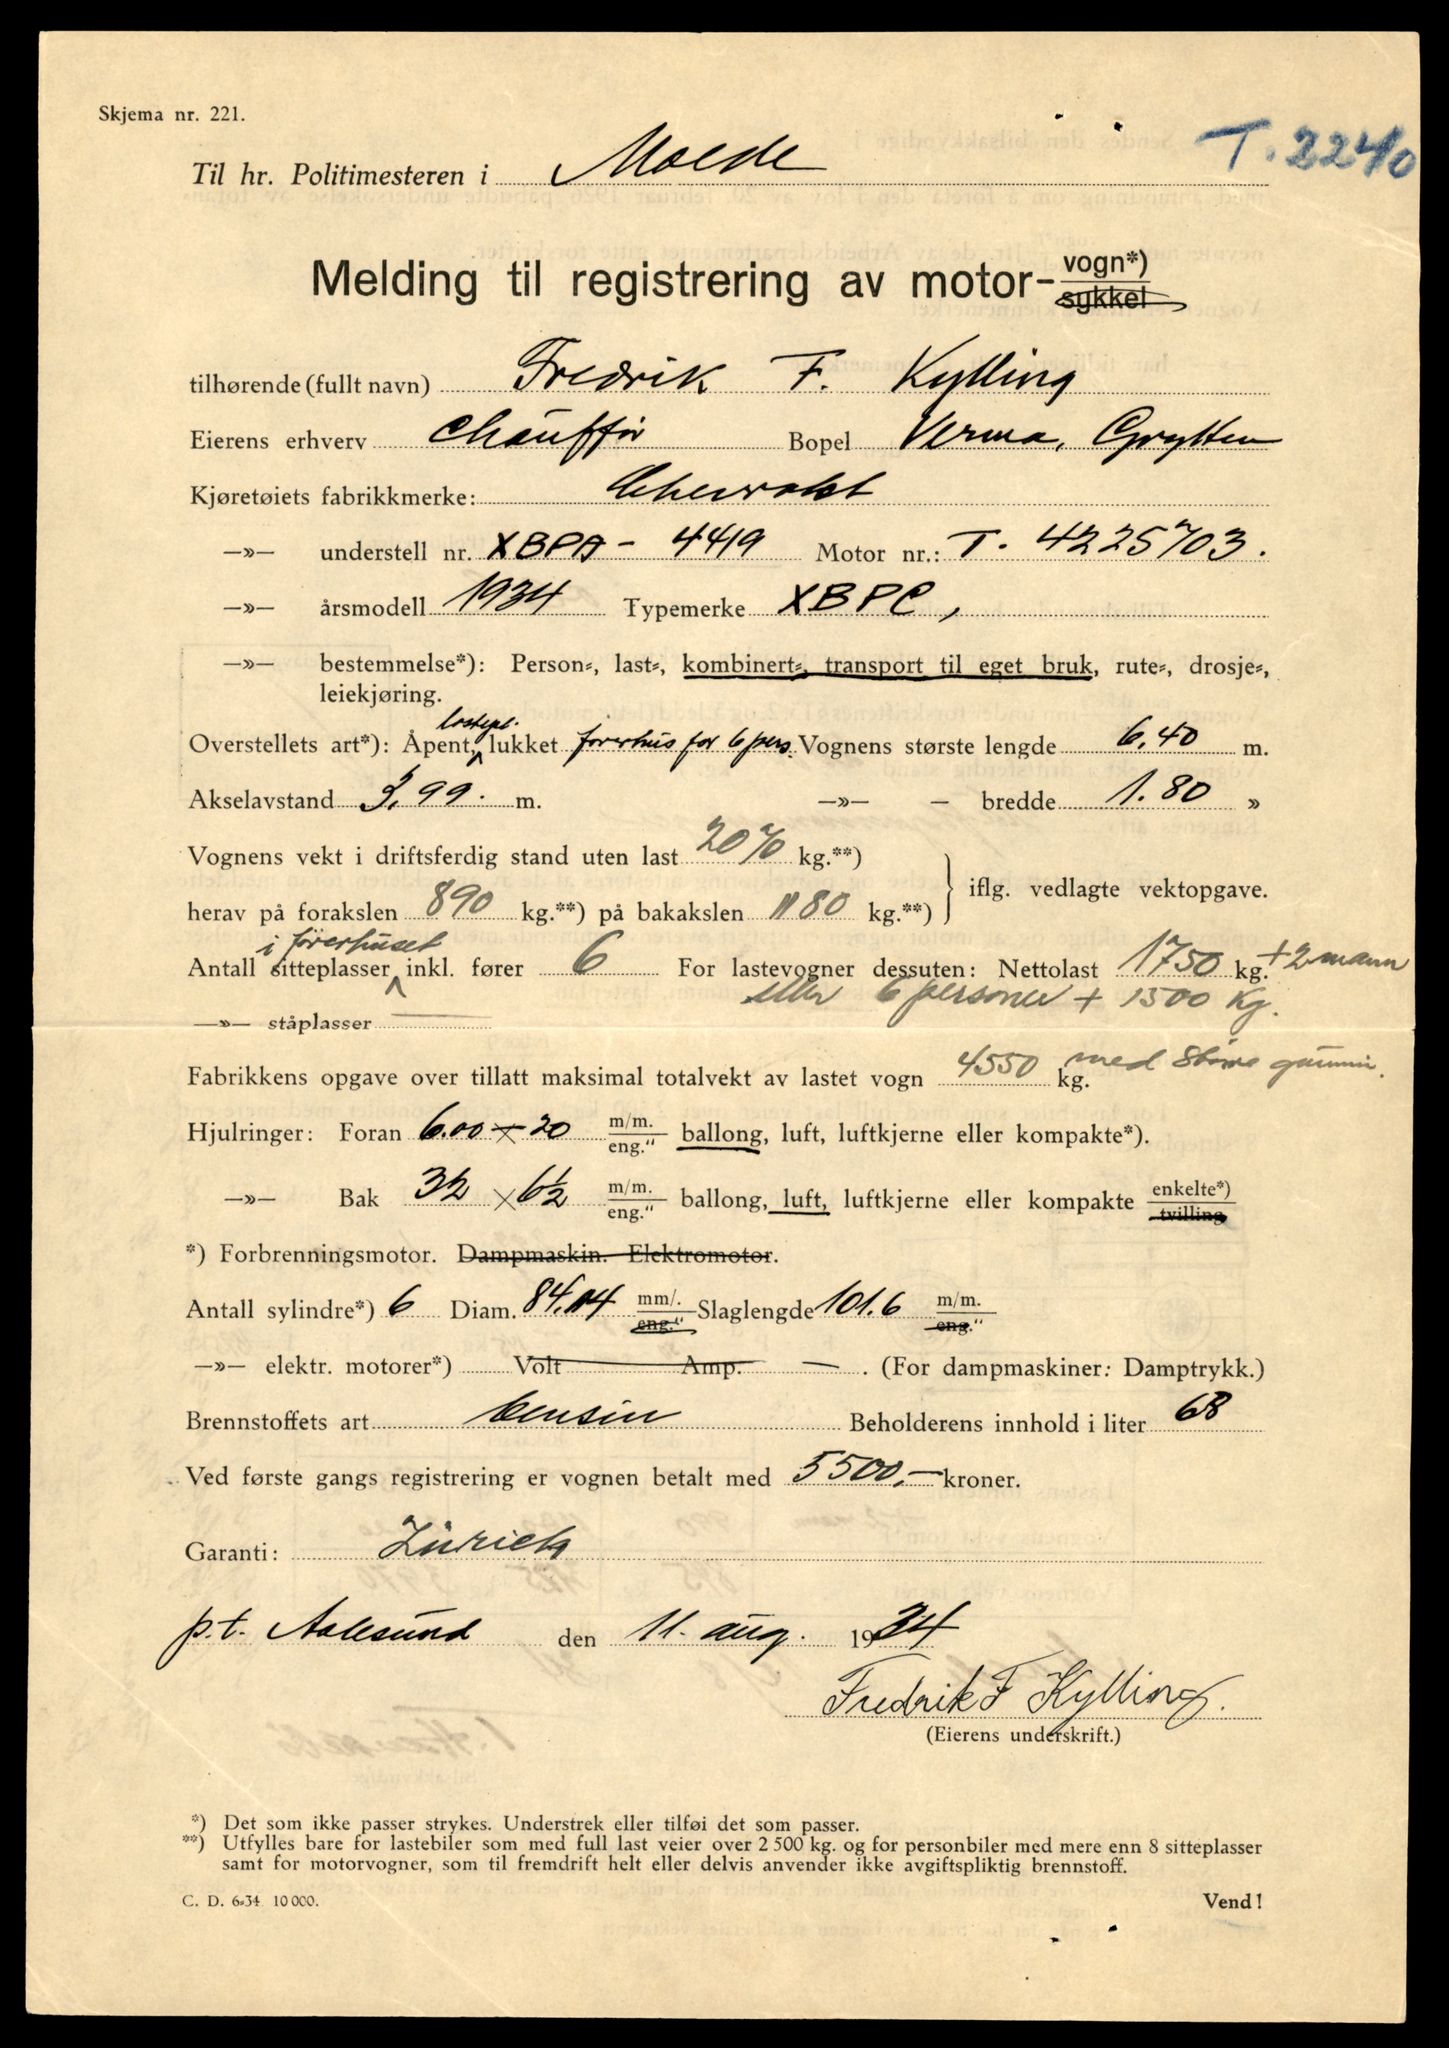 Skjema nr. 221.
T. 2240
Til hr. Politimesteren i Molde
Melding til registrering av motor- vogn*) sykkel
tilhørende (fullt navn) Fredrik F. Kylling
Eierens erhverv Chauffør Bopel Verma, Grytten
Kjøretøiets fabrikkmerke: Chevrolet
—»— understell nr. XBPA - 4419 Motor nr.: T. 4225703.
—»— årsmodell 1934 Typemerke XBPC,
—»— bestemmelse*): Person-, last-, kombinert-, transport til eget bruk, rute-, drosje-,
leiekjøring.
lastepl.
Overstellets art*): Åpent, lukket førerhus for 6 pers. Vognens største lengde 6.40 m.
Akselavstand 3.99. m. —»— — bredde 1.80 »
Vognens vekt i driftsferdig stand uten last 2070 kg.**)
herav på forakslen 890 kg.**) på bakakslen 1180 kg.**) } iflg. vedlagte vektopgave.
i førerhuset
Antall sitteplasser inkl. fører 6 For lastevogner dessuten: Nettolast 1750 kg. + 2 mann
eller 6 personer + 1500 kg.
—»— ståplasser —
Fabrikkens opgave over tillatt maksimal totalvekt av lastet vogn 4550 kg. med større gummi.
Hjulringer: Foran 6.00 x 20 m/m. eng." ballong, luft, luftkjerne eller kompakte*).
—»— Bak 32 x 6½ m/m. eng." ballong, luft, luftkjerne eller kompakte enkelte*) tvilling
*) Forbrenningsmotor. Dampmaskin. Elektromotor.
Antall sylindre*) 6 Diam. 84.14 mm/. eng." Slaglengde 101.6 m/m. eng."
—»— elektr. motorer*) Volt Amp. — . (For dampmaskiner: Damptrykk.)
Brennstoffets art bensin Beholderens innhold i liter 68
Ved første gangs registrering er vognen betalt med 5500,- kroner.
Garanti: Zürich
p.t. Aalesund den 11. aug. 1934
Fredrik F Kylling.
(Eierens underskrift.)
*) Det som ikke passer strykes. Understrek eller tilføi det som passer.
**) Utfylles bare for lastebiler som med full last veier over 2 500 kg. og for personbiler med mere enn 8 sitteplasser
samt for motorvogner, som til fremdrift helt eller delvis anvender ikke avgiftspliktig brennstoff.
C. D. 6-34 10 000.
Vend!